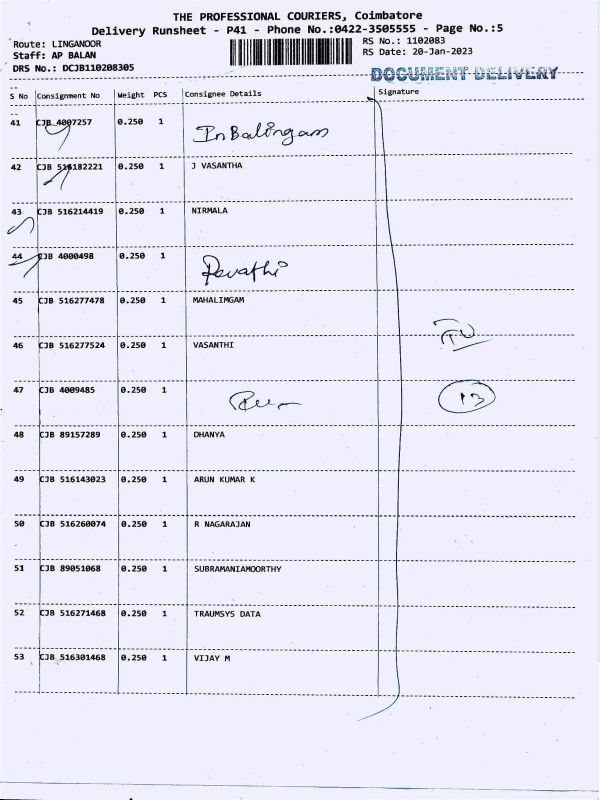 THE PROFESSIONAL COURIERS, Coimbatore
Delivery Runsheet - P41 - Phone No.:0422-3505555 - Page No.:5
Route: LINGANOOR
RS No.: 1102083
Staff: AP BALAN
RS Date: 20-Jan-2023
DRS No.: DCJB110208305
DOCUMENT DELIVERY
S No Consignment No Weight PCS Consignee Details Signature
41 CJB 4007257 0.250 1 InBalingam
42 CJB 516182221 0.250 1 J VASANTHA
43 CJB 516214419 0.250 1 NIRMALA
44 CJB 4000498 0.250 1 Revathi
45 CJB 516277478 0.250 1 MAHALIMGAM
46 CJB 516277524 0.250 1 VASANTHI
47 CJB 4009485 0.250 1
13
48 CJB 89157289 0.250 1 DHANYA
49 CJB 516143023 0.250 1 ARUN KUMAR K
50 CJB 516260074 0.250 1 R NAGARAJAN
51 CJB 89051068 0.250 1 SUBRAMANIAMOORTHY
52 CJB 516271468 0.250 1 TRAUMSYS DATA
53 CJB 516301468 0.250 1 VIJAY M